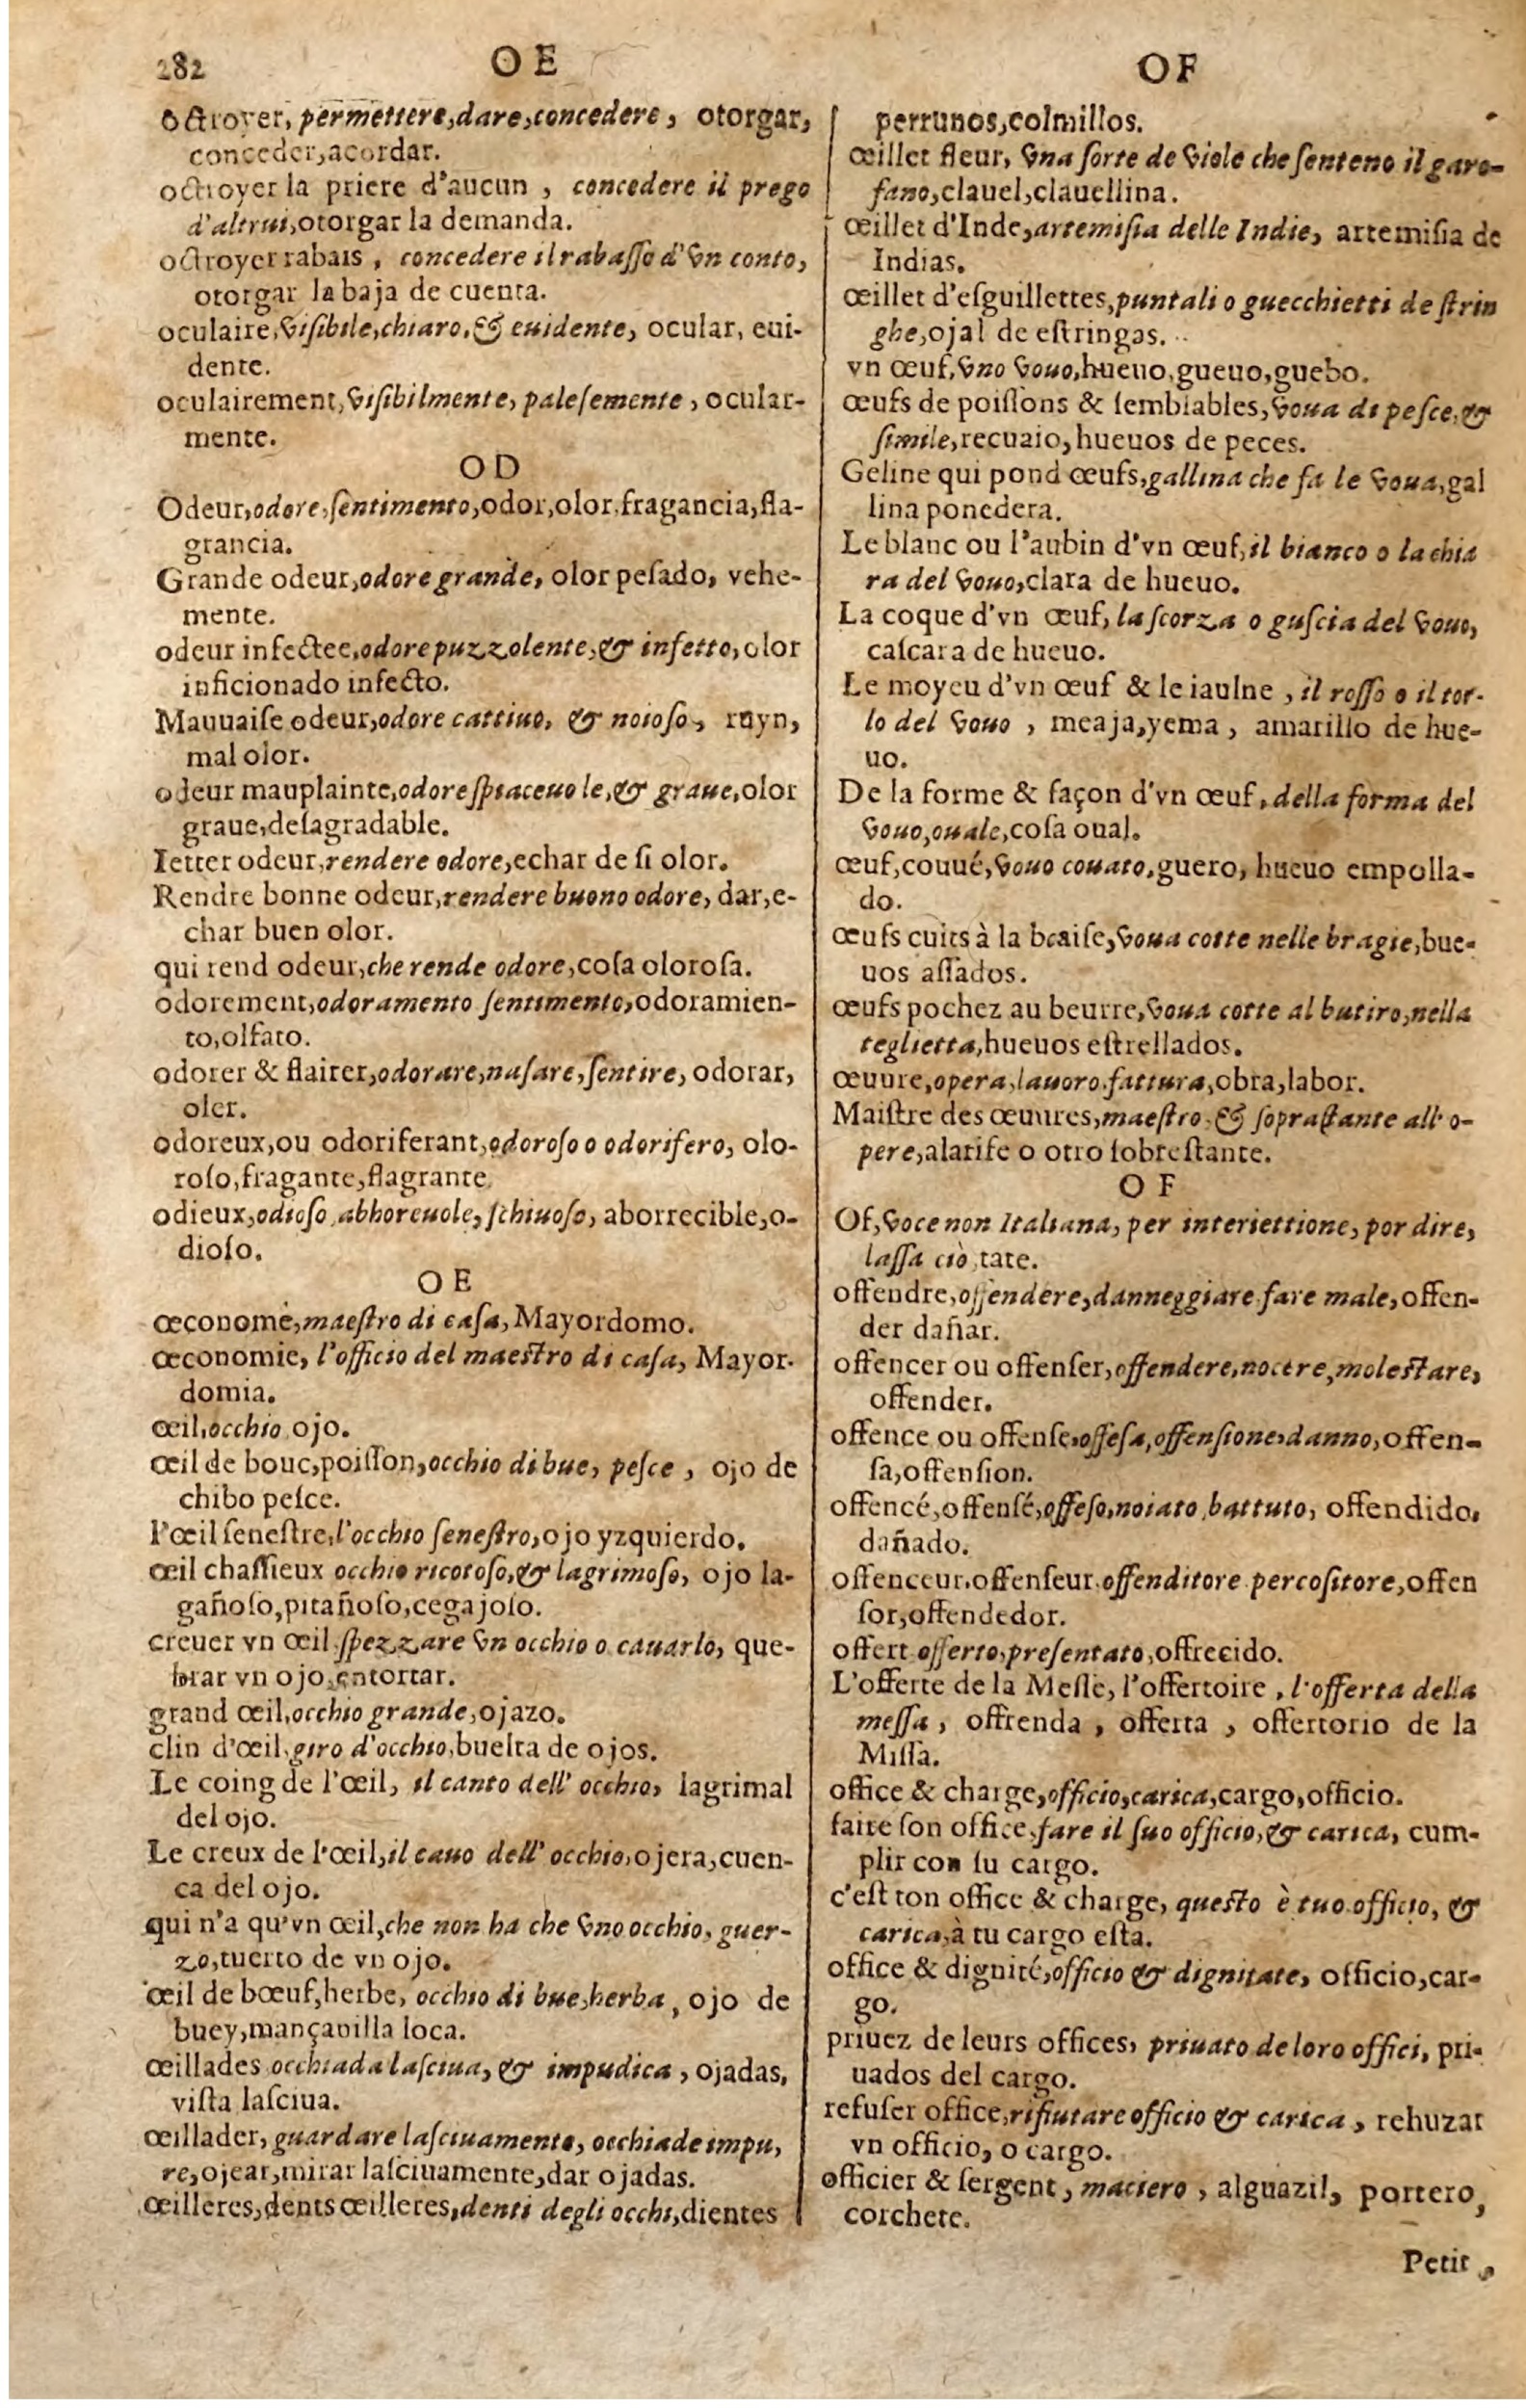 282
OE
OF
octroyer, permettere,dare,concedere, otorgar,
conceder,acordar.
octroyer la priere d'aucun, concedere il prego
d'altrui,otorgar la demanda.
octroyer rabais, concedere il rabaſſo d'vn conto,
otorgar la baja de cuenta.
oculaire,viſibile,chiaro,& euidente, ocular, eui-
dente.
oculairement,viſibilmente, paleſemente, ocular-
mente.
OD
Odeur,odore,ſentimento,odor,olor,fragancia,fla-
grancia.
Grande odeur,odore grande, olor peſado, vehe-
mente.
odeur infectee,odore puzzolente,& infetto,olor
inficionado infecto.
Mauuaiſe odeur,odore cattiuo, & noioſo, ruyn,
mal olor.
odeur mauplainte,odore ſpiaceuole,& graue,olor
graue,deſagradable.
Ietter odeur,rendere odore,echar de ſi olor.
Rendre bonne odeur,rendere buono odore, dar,e-
char buen olor.
qui rend odeur,che rende odore,coſa oloroſa.
odorement,odoramento ſentimento,odoramien-
to,olfato.
odorer & flairer,odorare,naſare,ſentire, odorar,
oler.
odoreux,ou odoriferant,odoroſo o odorifero, olo-
roſo,fragante,flagrante.
odieux,odioſo,abhoreuole,ſchiuoſo, aborrecible,o-
dioſo.
OE
œconome,maeſtro di caſa,Mayordomo.
œconomie, l'officio del maeſtro di caſa, Mayor-
domia.
œil,occhio ojo.
œil de bouc,poiſſon,occhio di bue, peſce, ojo de
chibo peſce.
l'œil ſeneſtre,l'occhio ſeneſtro,ojo yzquierdo.
œil chaſſieux occhio ricotoſo,& lagrimoſo, ojo la-
gañoſo,pitañoſo,cegajoſo.
creuer vn œil,ſpezzare vn occhio o cauarlo, que-
brar vn ojo,entortar.
grand œil,occhio grande,ojazo.
clin d'œil,giro d'occhio,buelta de ojos.
Le coing de l'œil, il canto dell' occhio, lagrimal
del ojo.
Le creux de l'œil,il cauo dell' occhio,ojera,cuen-
ca del ojo.
qui n'a qu'vn œil,che non ha che vno occhio, guer-
zo,tuerto de vn ojo.
œil de bœuf,herbe, occhio di bue,herba, ojo de
buey,mançanilla loca.
œillades occhiada laſciua, & impudica, ojadas,
viſta laſciua.
œillader, guardare laſciuamente, occhiade impu,
re,ojear,mirar laſciuamente,dar ojadas.
œilleres,dents œilleres,denti degli occhi,dientes
perrunos,colmillos.
œillet fleur, vna ſorte de viole che ſenteno il garo-
fano,clauel,clauellina.
œillet d'Inde,artemiſia delle Indie, artemiſia de
Indias.
œillet d'eſguillettes,puntali o guecchietti de ſtrin
ghe,ojal de eſtringas.
vn œuf,vno vouo,hueuo,gueuo,guebo.
œufs de poiſſons & ſemblables,voua di peſce,&
ſimile,recuaio,hueuos de peces.
Geline qui pond œufs,gallina che fa le voua,gal
lina ponedera.
Le blanc ou l'aubin d'vn œuf,il bianco o la chia
ra del vouo,clara de hueuo.
La coque d'vn œuf, la ſcorza o guſcia del vouo,
caſcara de hueuo.
Le moyeu d'vn œuf & le iaulne, il roſſo o il tor-
lo del vouo, meaja,yema, amarillo de hue-
uo.
De la forme & façon d'vn œuf,della forma del
vouo,ouale,coſa oual.
œuf,couué,vouo couato,guero, hueuo empolla-
do.
œufs cuits à la braiſe,voua cotte nelle bragie,hue-
uos aſſados.
œufs pochez au beurre,voua cotte al butiro,nella
teglietta,hueuos eſtrellados.
œuure,opera,lauoro,fattura,obra,labor.
Maiſtre des œuures,maeſtro,& ſopraſtante all' o-
pere,alarife o otro ſobreſtante.
OF
Of,voce non Italiana, per interiettione, por dire,
laſſa ciò,tate.
offendre,offendere,danneggiare fare male,offen-
der dañar.
offencer ou offenſer,offendere,nocere,moleſtare,
offender.
offence ou offenſe,offeſa,offenſione,danno,offen-
ſa,offenſion.
offencé,offenſé,offeſo,noiato,battuto, offendido,
dañado.
offenceur,offenſeur,offenditore percoſitore,offen
ſor,offendedor.
offert offerto,preſentato,offrecido.
L'offerte de la Meſſe, l'offertoire, l'offerta della
meſſa, offrenda, offerta, offertorio de la
Miſſa.
office & charge,officio,carica,cargo,officio.
faire ſon office,fare il ſuo officio,& carica, cum-
plir con ſu cargo.
c'eſt ton office & charge, queſto è tuo officio, &
carica,à tu cargo eſta.
office & dignité,officio & dignitate, officio,car-
go.
priuez de leurs offices, priuato de loro offici, pri-
uados del cargo.
refuſer office,rifiutare officio & carica, rehuzar
vn officio, o cargo.
officier & ſergent, maciero, alguazil, portero,
corchete.
Petit,